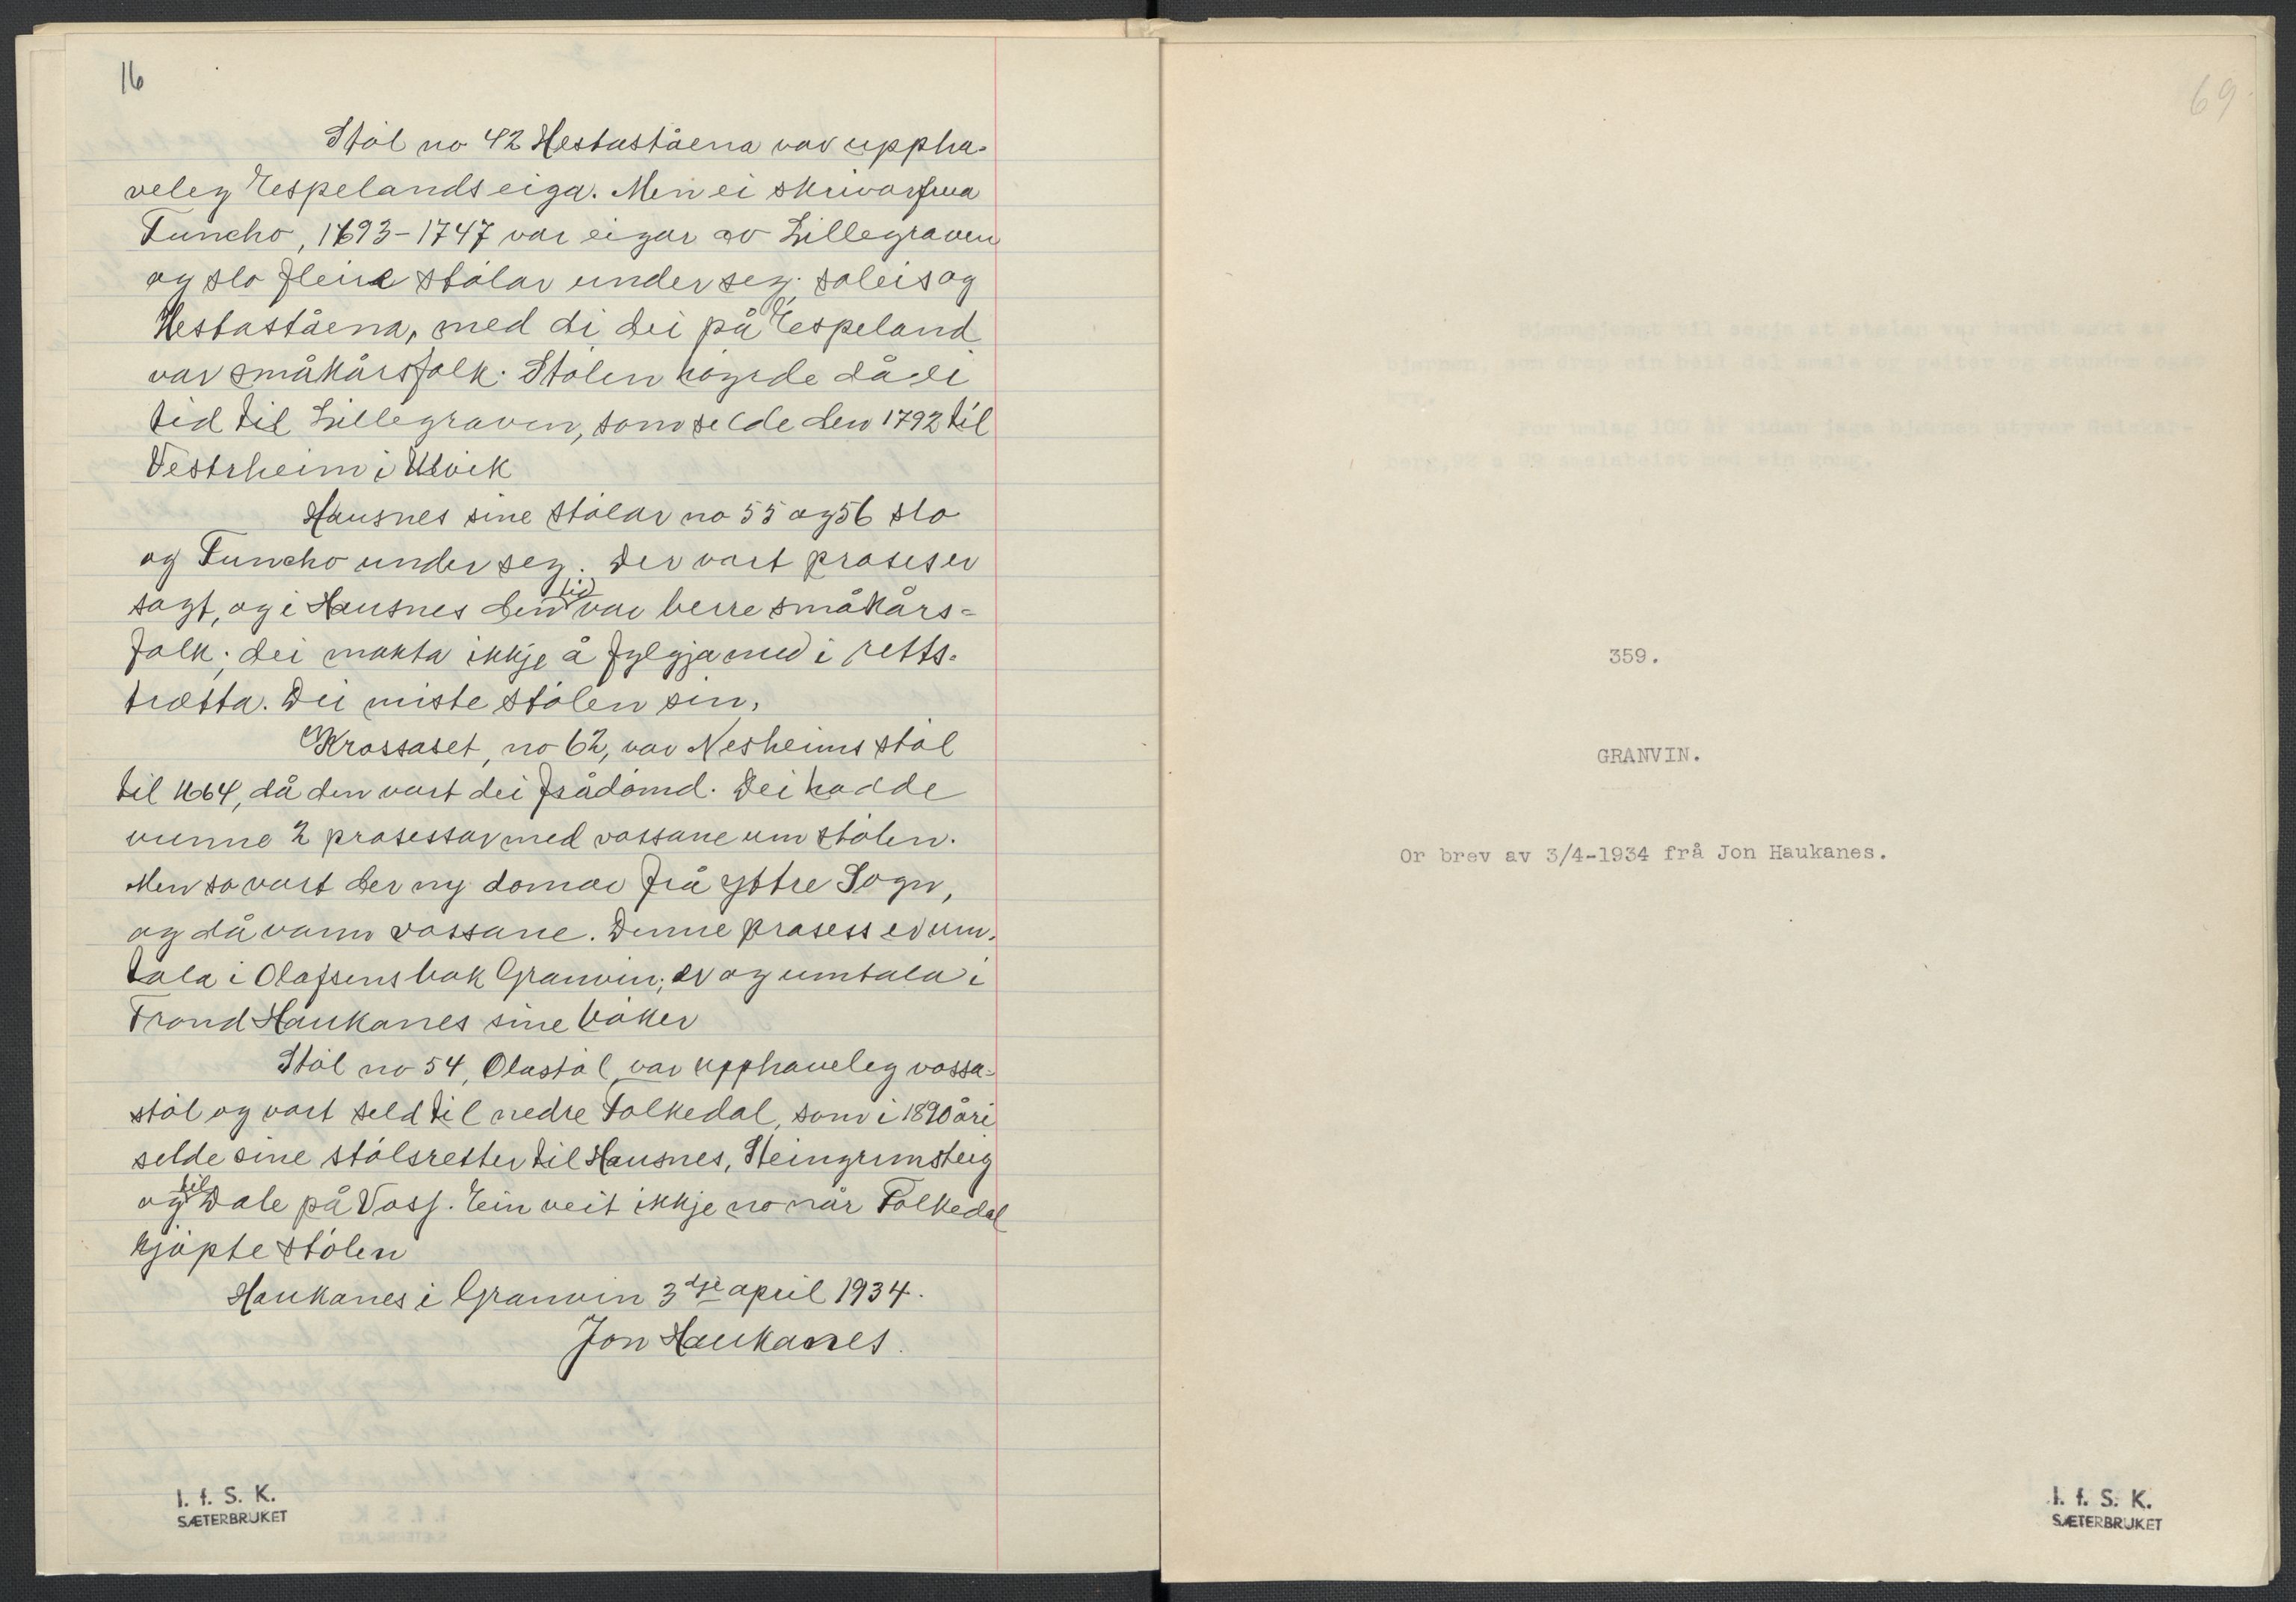 16
Støl no 42 Hestaståena var uppha-
veleg Espelands eiga. Men ei skrivarfrua
Funcho, 1693-1747 var eigar av Lillegraven
og slo fleire stølar under seg. soleis og
Hestaståena, med di dei på Espeland
var småkårsfolk. Stølen høyrde då ei
tid til Lillegraven, som selde den 1792 til
Vestrheim i Ulvik
Hausnes sine stølar no 55 og 56 slo
og Funcho under seg. Der vart proseser
sagt, og i Hausnes den tid var berre småkårs=
folk; dei makta ikkje å fylgja med i retts-
trætta. Dei miste stølen sin.
Krossaset, no 62, var Nesheims støl
til 1664, då den vart dei frådømd. Dei hadde
vunne 2 prosessar med vossane um stølen.
Men so vart der ny domar frå yttre Sogn,
og då vann vossane. Denne prosess er um-
tala i Olafsens bok Granvin; er og umtala i
Trond Haukanes sine bøker
Støl no 54, Olastøl, var upphaveleg vossa=
støl og vart seld til nedre Folkedal, som i 1890 åri
selde sine stølsretter til Hausnes, Steingrimsteig
og til Dale på Voss. Ein veit ikkje no når Folkedal
kjøpte stølen
Haukanes i Granvin 3dje april 1934.
Jon Haukanes.
I. f. S. K.
SÆTERBRUKET
69.
359.
GRANVIN.
Or brev av 3/4-1934 frå Jon Haukanes.
I. f. S. K.
SÆTERBRUKET